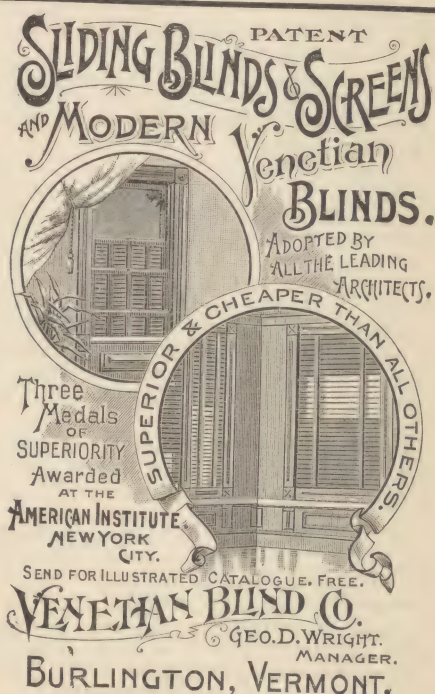 PATENT
SLIDING BLINDS & SCREENS
AND MODERN
Venetian
BLINDS.
ADOPTED BY
ALL THE LEADING
ARCHITECTS.
SUPERIOR & CHEAPER THAN ALL OTHERS.
Three
Medals
OF
SUPERIORITY
Awarded
AT THE
AMERICAN INSTITUTE
NEW YORK
CITY.
SEND FOR ILLUSTRATED CATALOGUE, FREE.
VENETIAN BLIND CO.
GEO. D. WRIGHT.
MANAGER.
BURLINGTON, VERMONT.